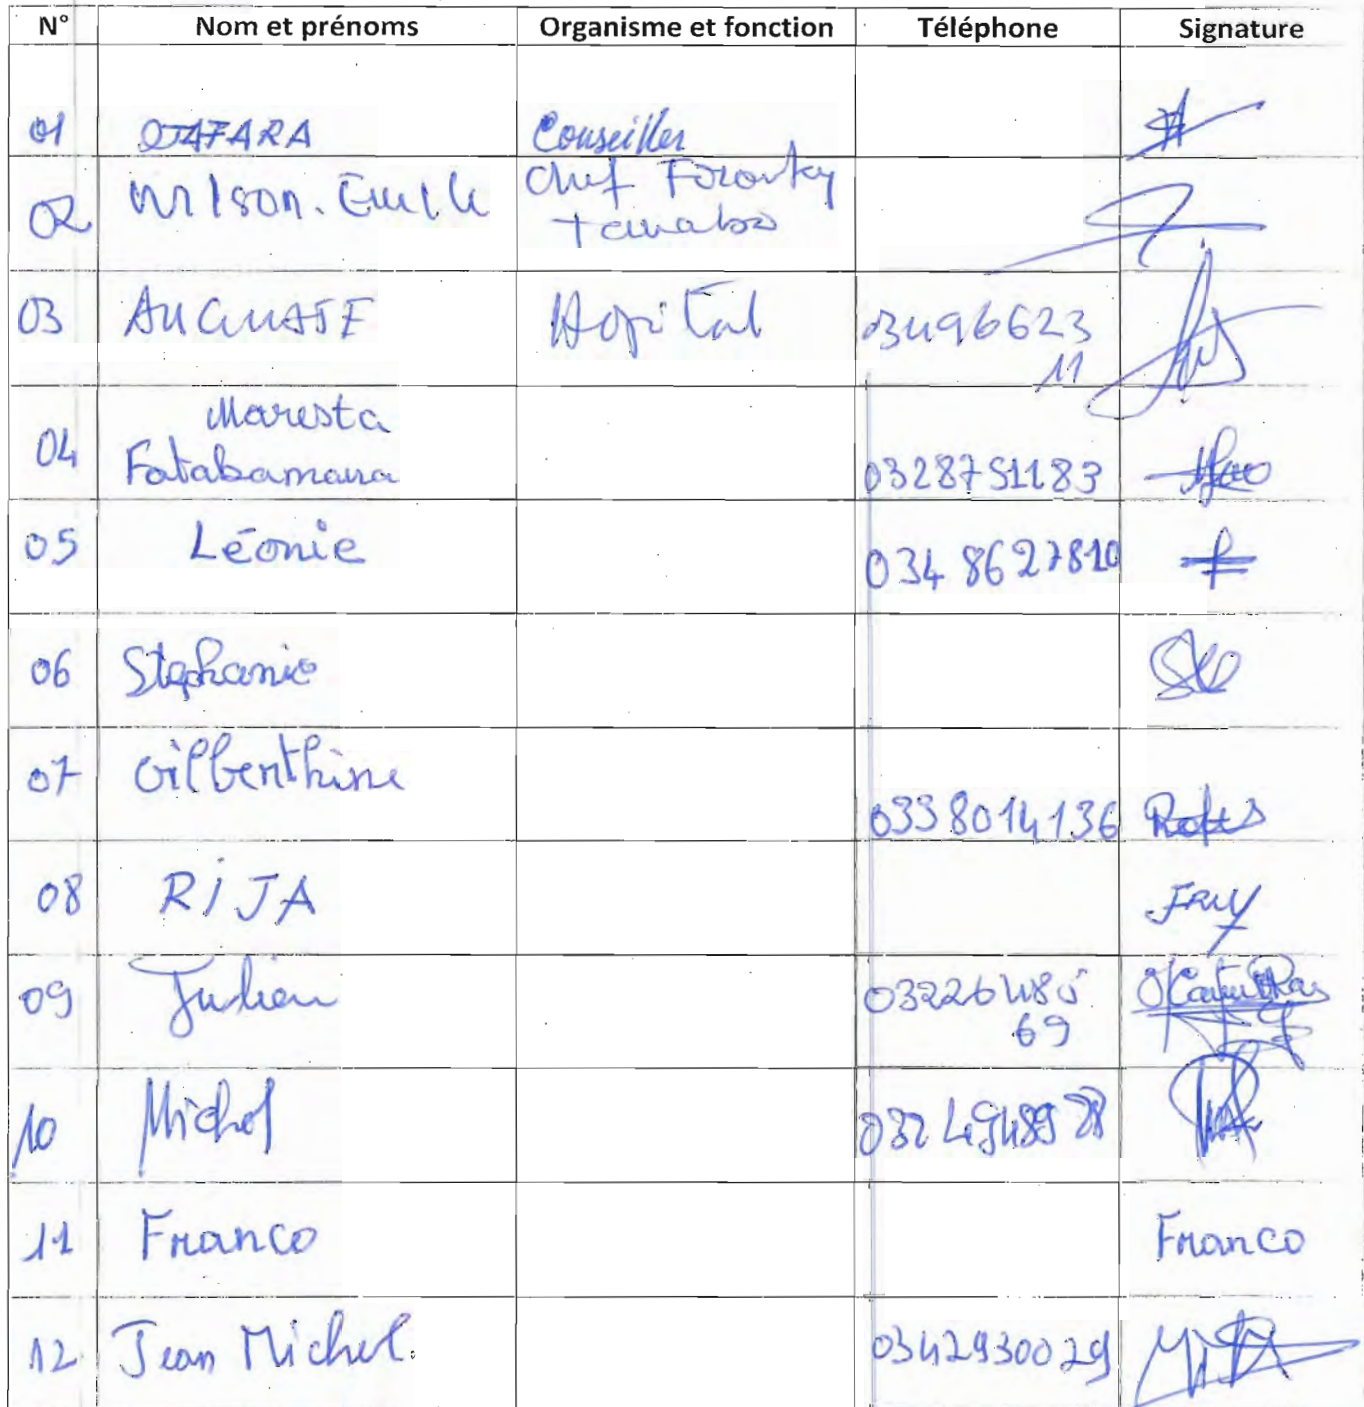 N° Nom et prénoms Organisme et fonction Téléphone Signature
01 OJAFARA Conseiller
02 Wilson. Emile Chef Fokontany
Tanambao
03 AUGUSTE Hopital 03496623
11
04 Maresta
Fatabamana 0328751183
05 Léonie 034 8627810
06 Stephanie
07 Gilbenthine
0338014136
08 RIJA
09 Julien 0322648
69
10 Michel 032
11 Franco Franco
12 Jean Michel. 0342930029